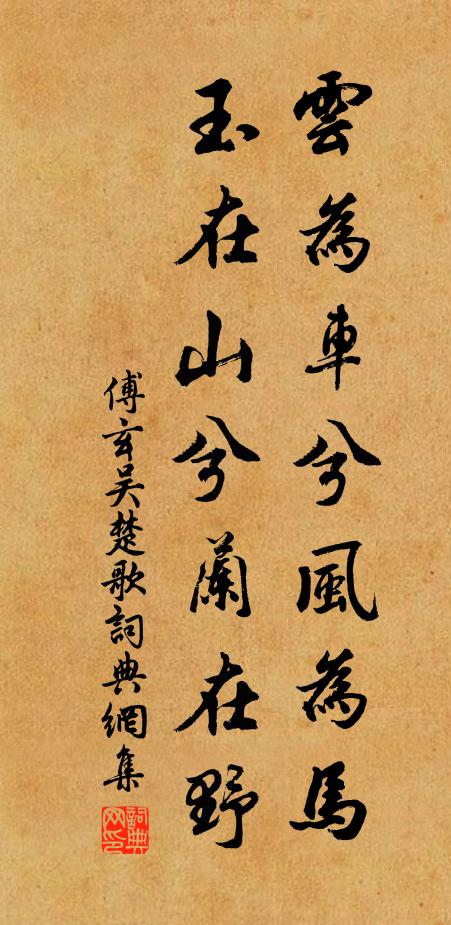 雲為車兮風為馬
玉在山兮蘭在野
傅玄吴楚歌詞典網集
詞典網印